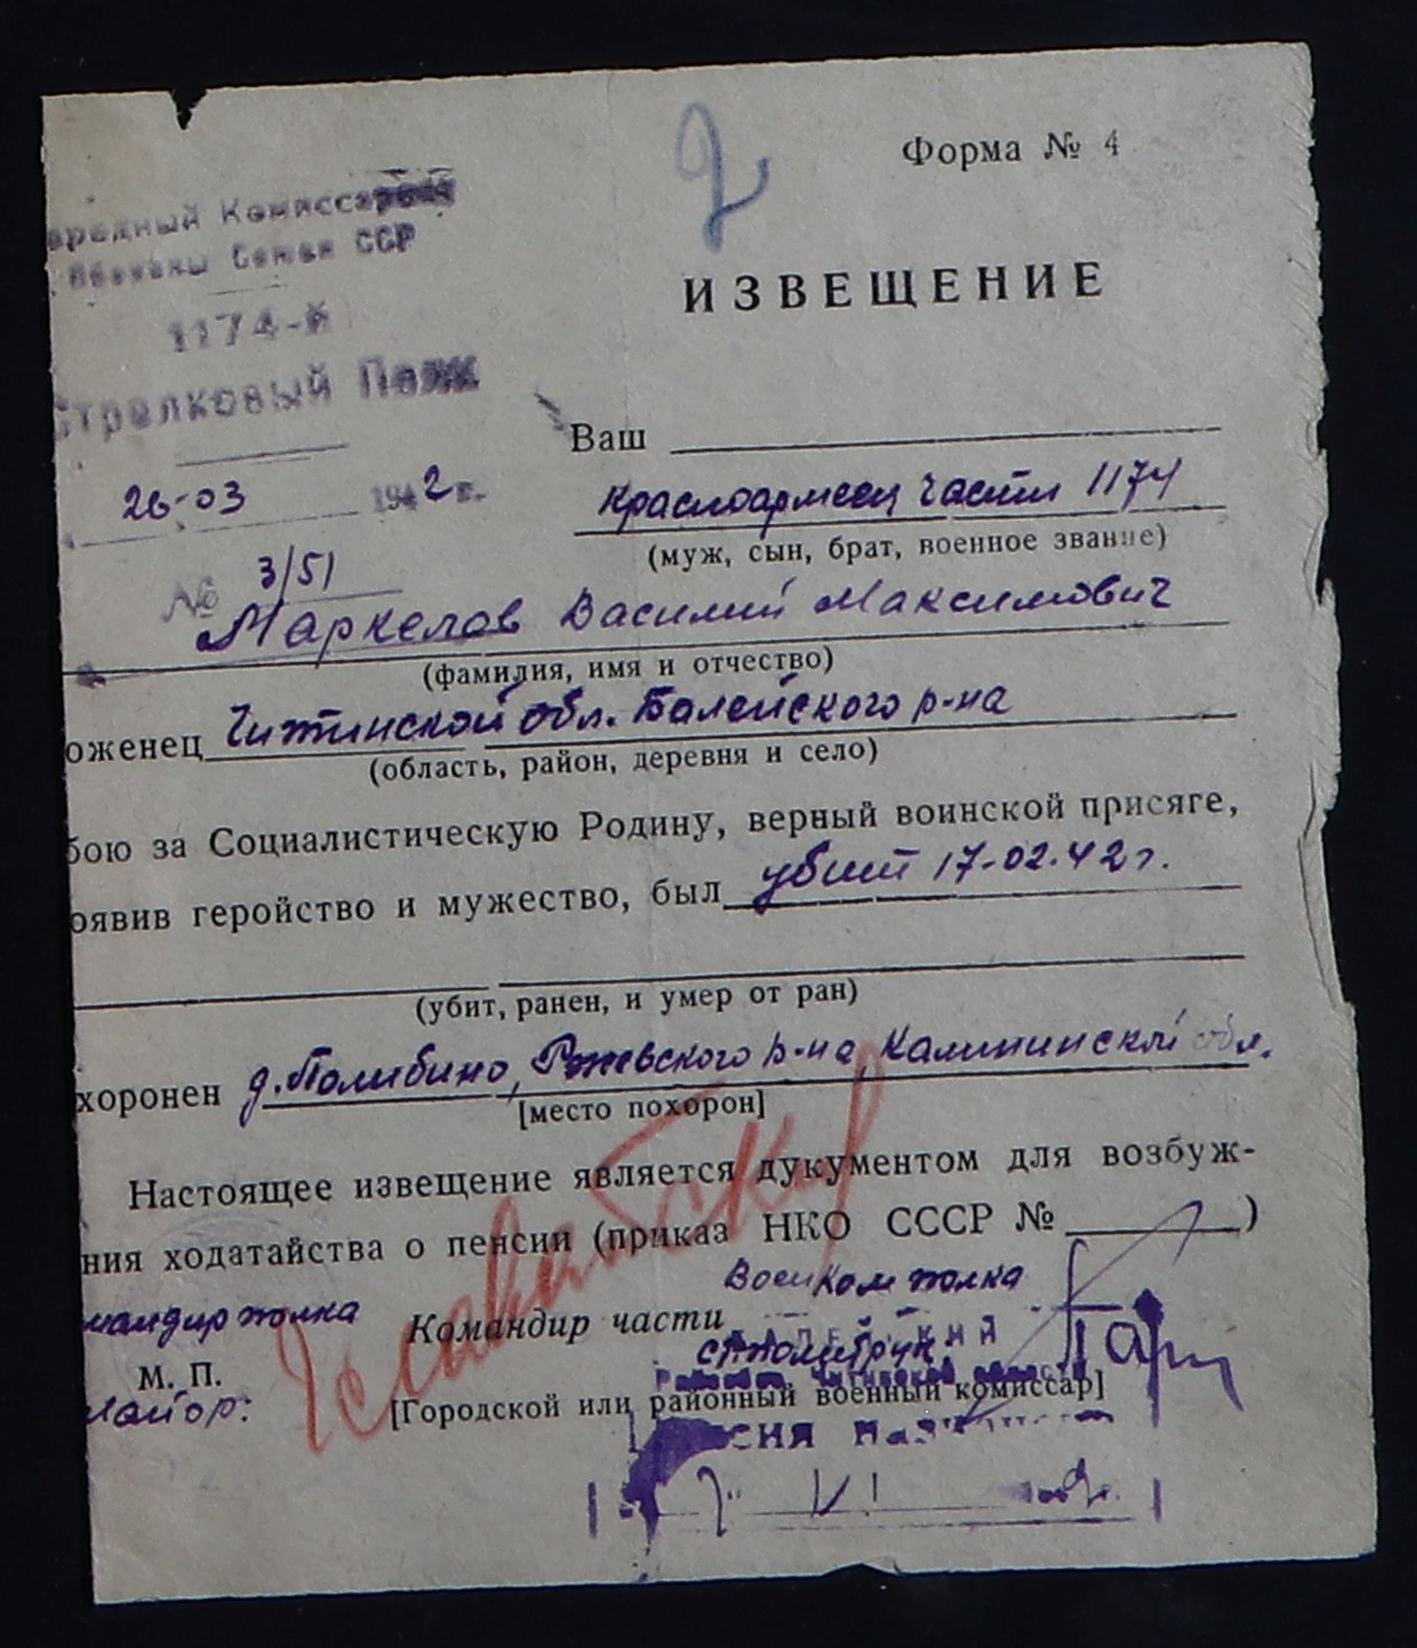 Форма № 4
ИЗВЕЩЕНИЕ
ародный Комиссариат
Обороны Союза ССР
1174-й
Стрелковый Полк
26-03 1942 г.
№ 3/51
Ваш
красноармеец части 1174
(муж, сын, брат, военное звание)
Маркелов Василий Максимович
(фамилия, имя и отчество)
оженец Читинской обл. Балейского р-на
(область, район, деревня и село)
бою за Социалистическую Родину, верный воинской присяге,
оявив геройство и мужество, был убит 17-02.42 г.
(убит, ранен, и умер от ран)
хоронен д. Полибино, Ржевского р-на, Калининской обл.
[место похорон]
Настоящее извещение является дукументом для возбуж-
ния ходатайства о пенсии (приказ НКО СССР № )
мандир полка Командир части Военком полка
ст политрук
М. П.
майор:
[Городской или районный военный комиссар]